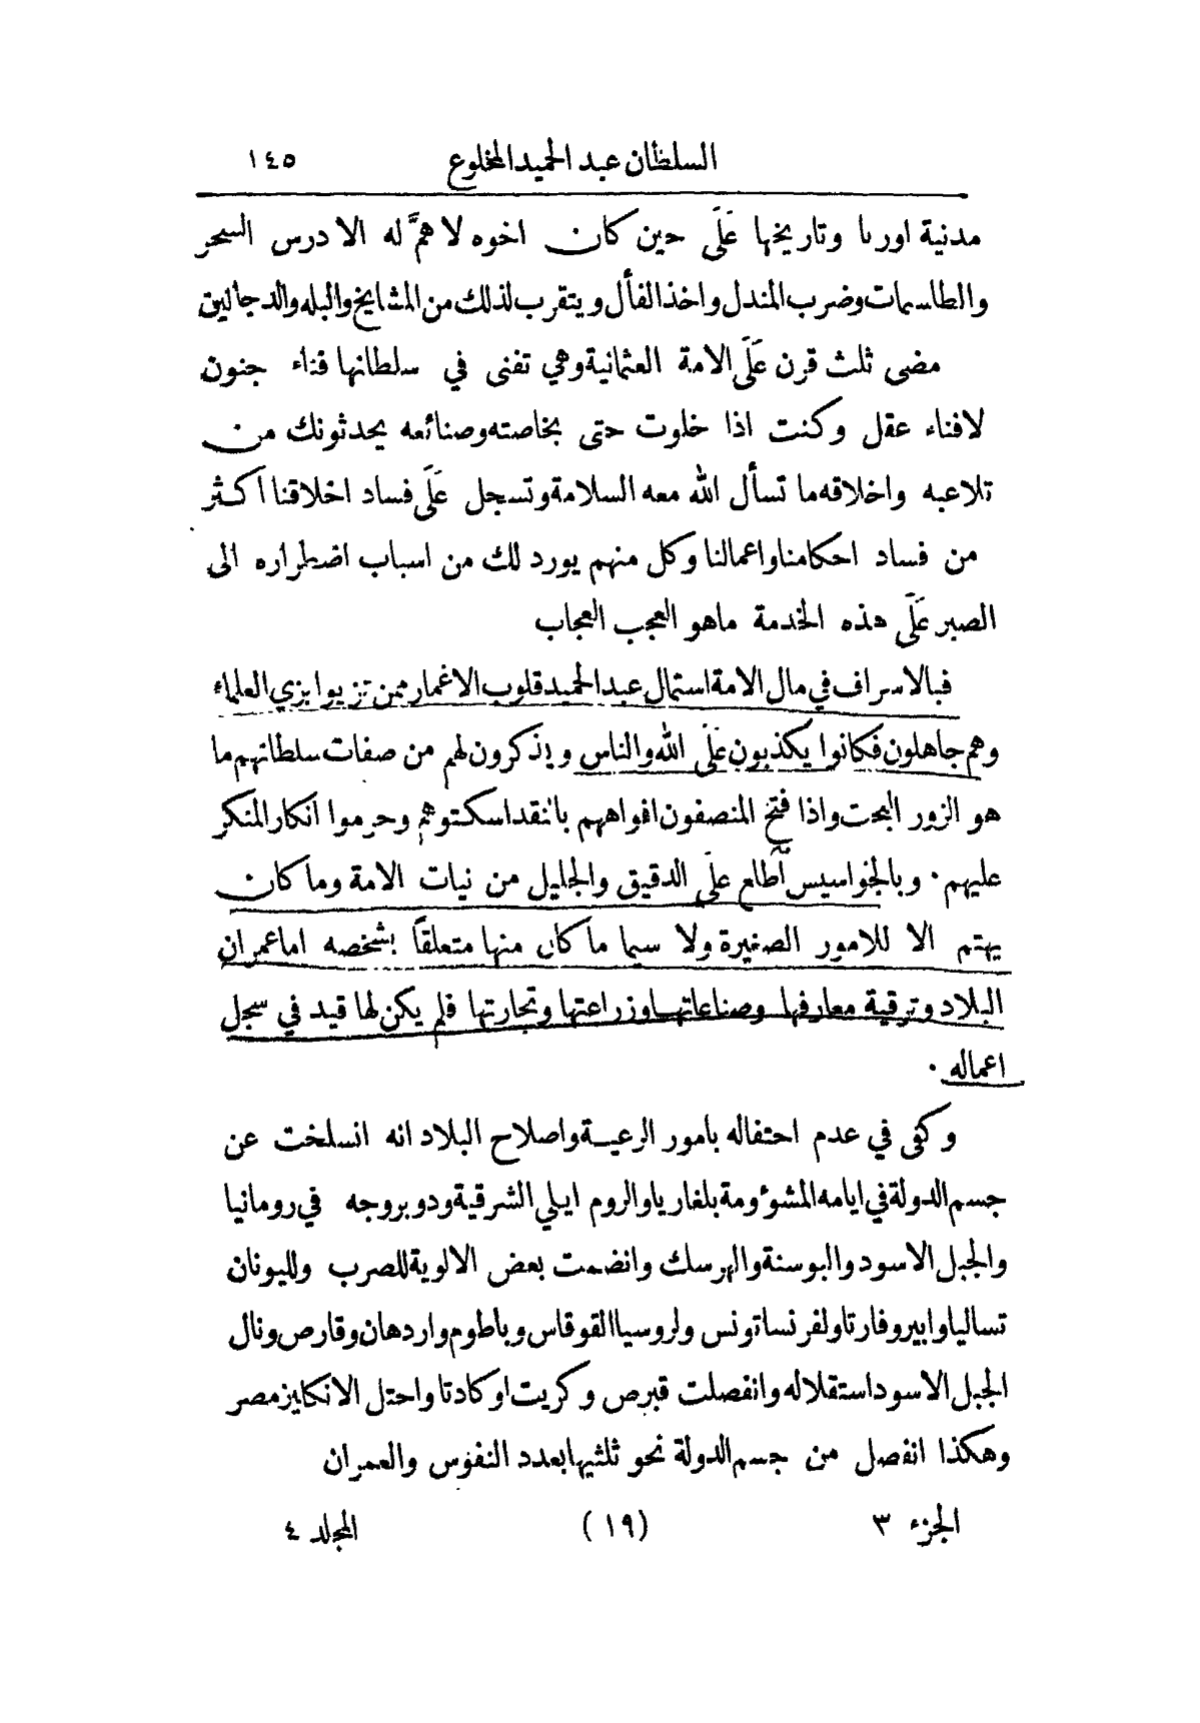 السلطان عبد الحميد المخلوع ١٤٥
مدنية اوربا وتاريخها عَلَى حين كان اخوه لا همَّ له الا درس السحر
والطلسمات وضرب المندل واخذ الفأل ويتقرب لذلك من المشايخ والبله والدجالين
مضى ثلث قرن عَلَى الامة العثمانية وهي تفنى في سلطانها فناء جنون
لافناء عقل وكنت اذا خلوت حتى بخاصته وصنائعه يحدثونك من
تلاعبه واخلاقه ما تسأل الله معه السلامة وتسجل عَلَى فساد اخلاقنا اكثر
من فساد احكامنا واعمالنا وكل منهم يورد لك من اسباب اضطراره الى
الصبر عَلَى هذه الخدمة ماهو العجب العجاب
فبالاسراف في مال الامة استمال عبد الحميد قلوب الاغمار ممن تزيوا بزي العلماء
وهم جاهلون فكانوا يكذبون عَلَى الله والناس ويذكرون لهم من صفات سلطانهم ما
هو الزور البحت واذا فتح المنصفون افواههم بالنقد اسكتوهم وحرموا انكار المنكر
عليهم . وبالجواسيس اطلع عَلَى الدقيق والجليل من نيات الامة وما كان
يهتم الا للامور الصغيرة ولا سيما ما كان منها متعلقاً بشخصه اما عمران
البلاد وترقية معارفها وصناعاتها وزراعتها وتجارتها فلم يكن لها قيد في سجل
اعماله .
وكفى في عدم احتفاله بامور الرعية واصلاح البلاد انه انسلخت عن
جسم الدولة في ايامه المشؤومة بلغاريا والروم ايلي الشرقية ودوبروجه في رومانيا
والجبل الاسود والبوسنة والهرسك وانضمت بعض الالوية للصرب ولليونان
تساليا وابيروفارتا ولفرنسا تونس ولروسيا القوقاس وباطوم واردهان وقارص ونال
الجبل الاسود استقلاله وانفصلت قبرص وكريت او كادتا واحتل الانكليز مصر
وهكذا انفصل من جسم الدولة نحو ثلثيها بعدد النفوس والعمران
الجزء ٣ (١٩) المجلد ٤